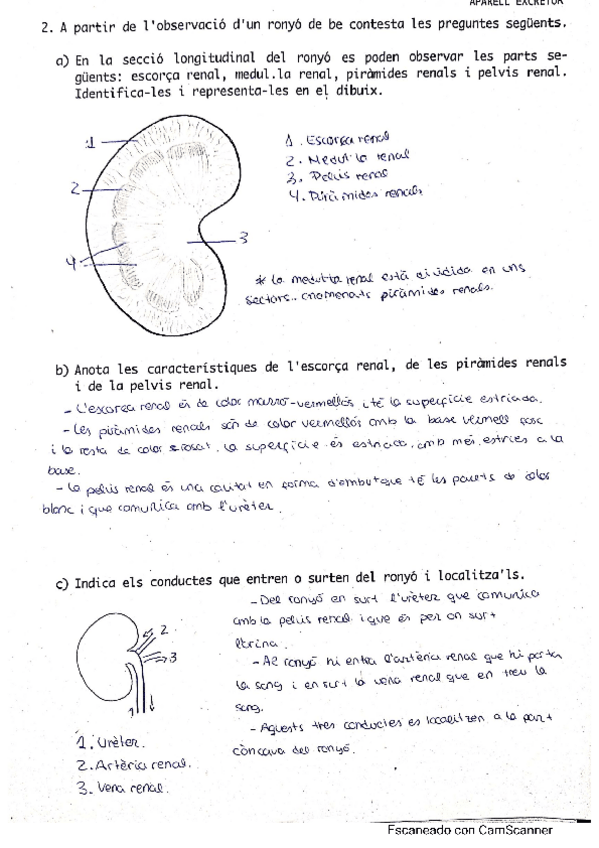 APARELL EXCRETOR
2. A partir de l'observació d'un ronyó de be contesta les preguntes següents.
a) En la secció longitudinal del ronyó es poden observar les parts se-
güents: escorça renal, medul.la renal, piràmides renals i pelvis renal.
Identifica-les i representa-les en el dibuix.
1
2
4
3
1. Escorça renal
2. Medul·la renal
3. Pelvis renal
4. Piràmides renals
* la medul·la renal està dividida en uns
sectors.. anomenats piràmides renals.
b) Anota les característiques de l'escorça renal, de les piràmides renals
i de la pelvis renal.
- L'escorça renal és de color marró-vermellós i té la superfície estriada.
- Les piràmides renals són de color vermellós amb la base vermell fosc
i la resta de color rosat. La superfície és estriada, amb més estries a la
base.
- La pelvis renal és una cavitat en forma d'embut que té les parets de color
blanc i que comunica amb l'urèter.
c) Indica els conductes que entren o surten del ronyó i localitza'ls.
2
3
1
1. Urèter.
2. Artèria renal.
3. Vena renal.
- Del ronyó en surt l'urèter que comunica
amb la pelvis renal i que és per on surt
l'orina.
- Al ronyó hi entra l'artèria renal que hi porta
la sang i en surt la vena renal que en treu la
sang.
- Aquests tres conductes es localitzen a la part
còncava del ronyó.
Escaneado con CamScanner